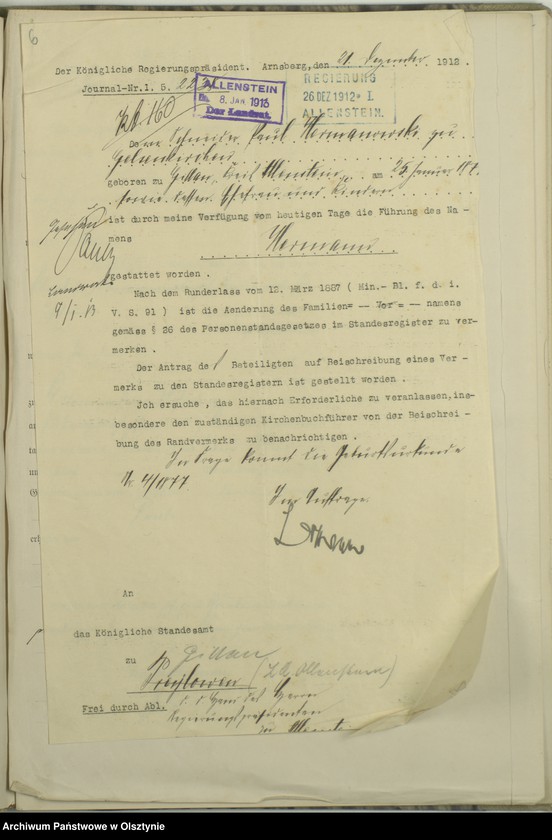 6
Der Königliche Regierungspräsident. Arnsberg, den 21. Dezember 1912.
Journal-Nr. I. 5.
ALLENSTEIN
8. JAN 1913
Der Landrat.
REGIERUNG
26 DEZ 1912 * I.
ALLENSTEIN.
Schneider Paul Hermanowski zu
Gelsenkirchen
geboren zu Gillau, Kreis Allenstein, am 25. Januar
sowie dessen Ehefrau und Kindern
ist durch meine Verfügung vom heutigen Tage die Führung des Na-
mens
Hermann
gestattet worden.
Nach dem Runderlass vom 12. März 1887 ( Min.- Bl. f. d. i.
V. S. 91 ) ist die Aenderung des Familien= — Vor = — namens
gemäss § 26 des Personenstandsgesetzes im Standesregister zu ver-
merken.
Der Antrag de Beteiligten auf Beischreibung eines Ver-
merks zu den Standesregistern ist gestellt worden.
Jch ersuche, das hiernach Erforderliche zu veranlassen, ins-
besondere den zuständigen Kirchenbuchführer von der Beischrei-
bung des Randvermerks zu benachrichtigen.
In Frage kommt die Geburtsurkunde
Nr. 4/1877.
Im Auftrage.
An
das Königliche Standesamt
zu Gillau
(Kr. Allenstein)
Frei durch Abl.
d. d. Hand des Herrn
Regierungspräsidenten
in Allenstein
Archiwum Państwowe w Olsztynie